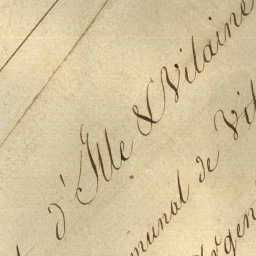 d'Ille & Vilaine
munal de Vi